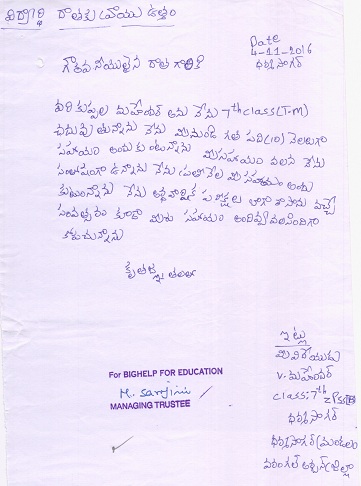 విద్యార్థి దాతకు వ్రాయు ఉత్తరం
Date
4-11-2016
ధర్మసాగర్
గౌరవనీయులైన దాత గారికి
మహేందర్ అను నేను 7th class (T.M)
చదువుతున్నాను నేను మీనుండి గత పది(10) నెలలుగా
సహాయం అందుకుంటున్నాను మీ సహాయం వలన నేను
సంతోషంగా ఉన్నాను నేను ప్రతి నెల మీ సహాయం అందు
కుంటున్నాను నేను పరీక్షలు బాగా రాసాను వచ్చే
సంవత్సరం కూడా మీరు సహాయం
కోరుచున్నాను
కృతజ్ఞతలతో
ఇట్లు
మీ విధేయుడు
V. మహేందర్
class: 7th
ధర్మసాగర్
ధర్మసాగర్ (మండలం)
వరంగల్ అర్బన్ (జిల్లా)
For BIGHELP FOR EDUCATION
MANAGING TRUSTEE